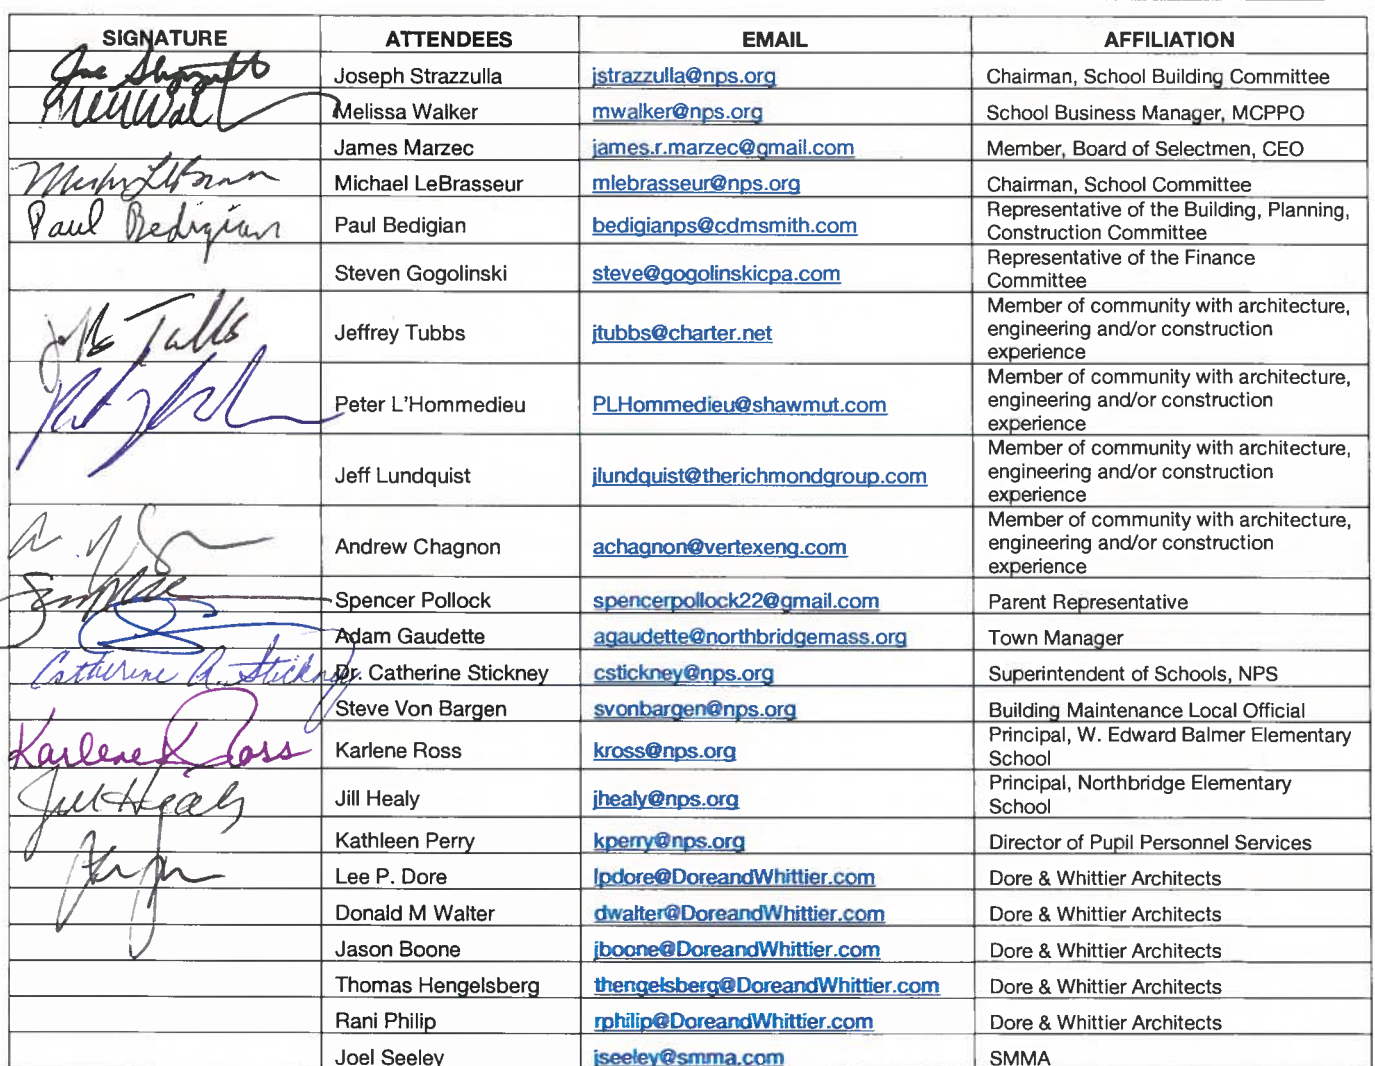 SIGNATURE ATTENDEES EMAIL AFFILIATION
Joseph Strazzulla jstrazzulla@nps.org Chairman, School Building Committee
Melissa Walker mwalker@nps.org School Business Manager, MCPPO
James Marzec james.r.marzec@gmail.com Member, Board of Selectmen, CEO
Michael LeBrasseur mlebrasseur@nps.org Chairman, School Committee
Paul Bedigian Paul Bedigian bedigianps@cdmsmith.com Representative of the Building, Planning,
Construction Committee
Steven Gogolinski steve@gogolinskicpa.com Representative of the Finance
Committee
Jeffrey Tubbs jtubbs@charter.net Member of community with architecture,
engineering and/or construction
experience
Peter L'Hommedieu PLHommedieu@shawmut.com Member of community with architecture,
engineering and/or construction
experience
Jeff Lundquist jlundquist@therichmondgroup.com Member of community with architecture,
engineering and/or construction
experience
Andrew Chagnon achagnon@vertexeng.com Member of community with architecture,
engineering and/or construction
experience
Spencer Pollock spencerpollock22@gmail.com Parent Representative
Adam Gaudette agaudette@northbridgemass.org Town Manager
Catherine A. Stickney Dr. Catherine Stickney cstickney@nps.org Superintendent of Schools, NPS
Steve Von Bargen svonbargen@nps.org Building Maintenance Local Official
Karlene Ross Karlene Ross kross@nps.org Principal, W. Edward Balmer Elementary
School
Jill Healy Jill Healy jhealy@nps.org Principal, Northbridge Elementary
School
Kathleen Perry kperry@nps.org Director of Pupil Personnel Services
Lee P. Dore lpdore@DoreandWhittier.com Dore & Whittier Architects
Donald M Walter dwalter@DoreandWhittier.com Dore & Whittier Architects
Jason Boone jboone@DoreandWhittier.com Dore & Whittier Architects
Thomas Hengelsberg thengelsberg@DoreandWhittier.com Dore & Whittier Architects
Rani Philip rphilip@DoreandWhittier.com Dore & Whittier Architects
Joel Seeley jseeley@smma.com SMMA